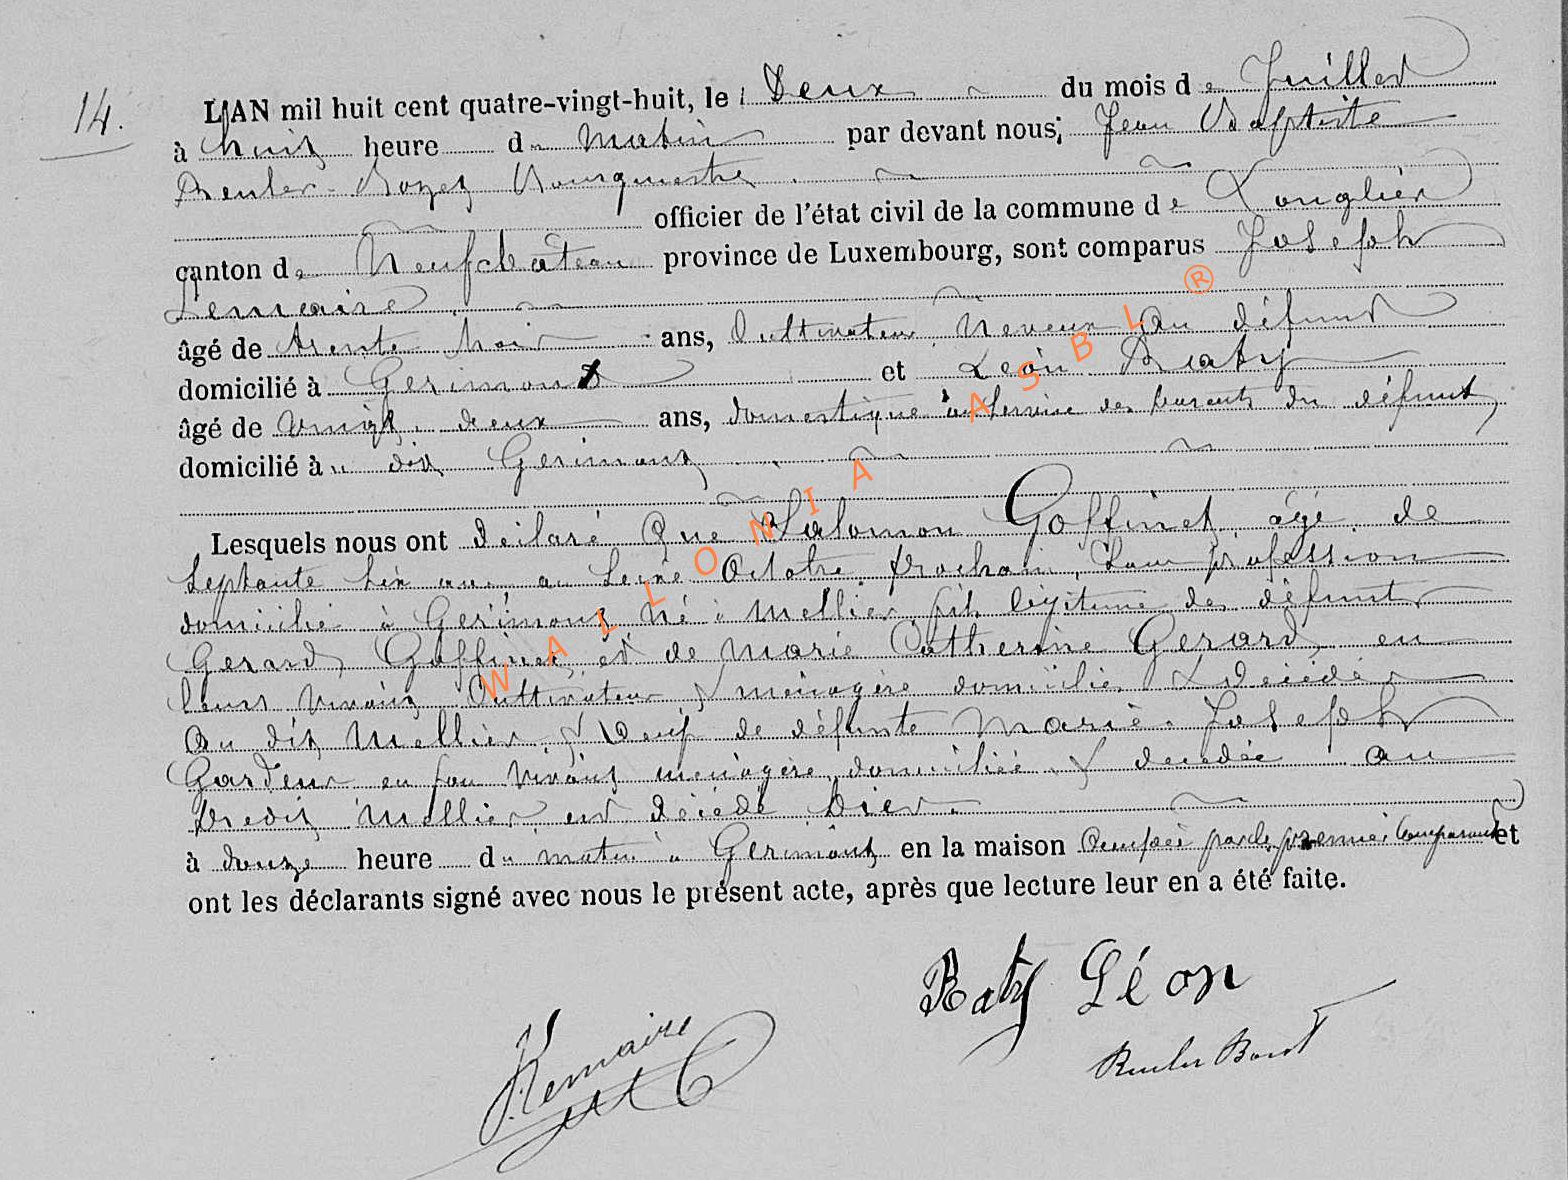 14.
L'AN mil huit cent quatre-vingt-huit, le Deux du mois de Juillet
à huit heure du matin par devant nous; Jean Baptiste
Reuler-Bozet Bourgmestre
officier de l'état civil de la commune de Longlier
canton de Neufchateau province de Luxembourg, sont comparus Joseph
Lemaire
âgé de trente trois ans, Cultivateur, Neveux du défunt
domicilié à Gerimont et Léon Raty
âgé de vingt deux ans, domestique au Service des parents du défunt,
domicilié à u dit Gerimont
Lesquels nous ont déclaré Que Salomon Goffinet âgé de
Septante Six ans au Seize Octobre prochain, Sans profession
domicilié à Gerimont Né à Mellier fils légitime des défunts
Gerard Goffinet et de Marie Catherine Gerard, en
leurs vivant Cultivateur & ménagère domiciliés & décédés
Au dit Mellier, & Veuf de défunte Marie-Joseph
Gardeur en son vivant ménagère, domiciliée & decedée au
predit Mellier est décédé hier
à douze heure du matin à Gerimont en la maison Occupée par le premier Comparant et
ont les déclarants signé avec nous le présent acte, après que lecture leur en a été faite.
Raty Léon
J. Lemaire
WALLONIA ASBL ®